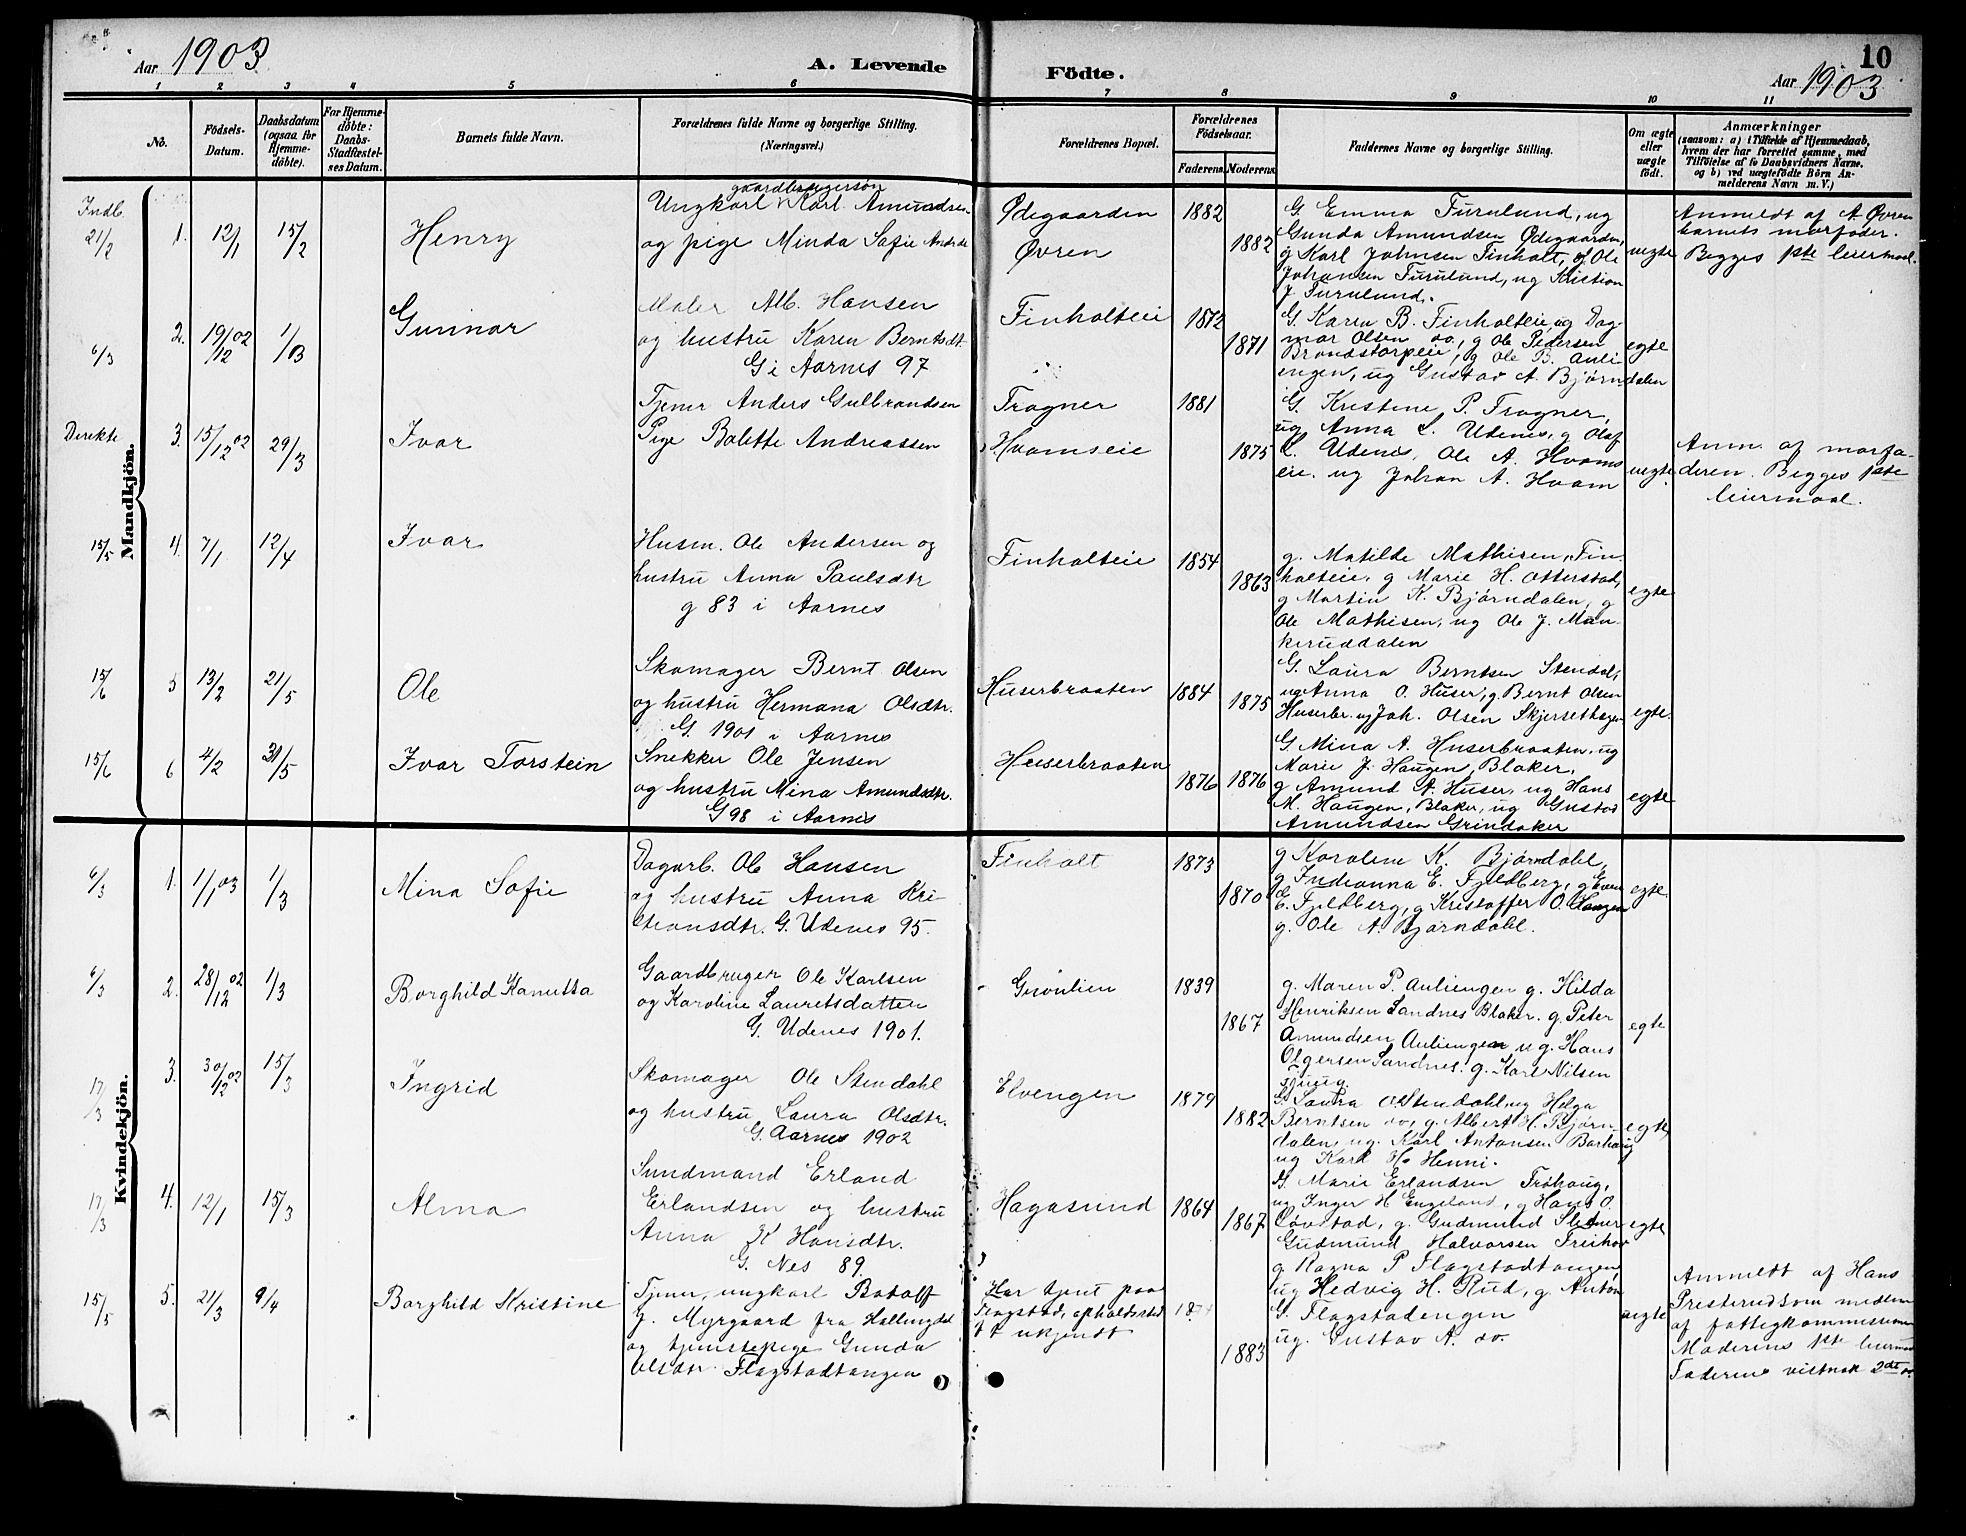 Aar 1903
A. Levende
Födte.
10
Aar 1903
1 2 3 4 5 6 7 8 9 10 11
No.
Födsels-
Datum.
Daabsdatum
(ogsaa for
Hjemme-
döbte).
For Hjemme-
döbte:
Daabs-
Stadfæstel-
ses Datum.
Barnets fulde Navn.
Forældrenes fulde Navne og borgerlige Stilling.
(Næringsvei.)
Forældrenes Bopæl.
Forældrenes
Födselsaar.
Faderens Moderens
Faddernes Navne og borgerlige Stilling.
Om ægte
eller
uægte
födt.
Anmærkninger
(saasom: a) i Tilfælde af Hjemmedaab,
hvem der har forrettet samme, med
Tilföielse af to Daabsvidners Navne,
og b) ved uægtefödte Börn An-
melderens Navn m. V.)
Mandkjön.
Indb.
21/2
1. 12/1 15/2
Henry
gaardbrugersøn
Ungkarl Karl Amundsen
og pige Minda Sofie Andrdt
Ødegaarden
Øvren
1882
1882
G. Emma Furulund, ug
Gunda Amundsen Ødegaarden,
g Karl Johnsen Finholt, g Ole
Johansen Furulund, ug Kristian
J. Furulund.
uegte
Anmeldt af A. Øvren
barnets morfader.
Begges 1ste leiermaal.
6/3
2. 19/12 02 1/3
Gunnar
Maler Alb. Hansen
og hustru Karen Berntsdt.
G i Aarnes 97
Finholteie
1872
1871
G. Karen B. Finholteie, ug Dag-
mar Olsen do., g Ole Pedersen
Brandstorpeie, g Ole B. Auli-
engen, ug Gustav A. Bjørndalen
egte
Direkte
3. 15/12 02 29/3
Ivar
Tjener Anders Gulbrandsen
Pige Bolette Andreassen
Fragner
Hvamseie
1881
1875
G. Kristine P. Fragner,
ug Anna L. Udenes, g Olaf
L. Udenes, Ole A. Hvams
eie. ug Johan A. Hvam
uegte.
Anm. af morfa-
deren. Begges 1ste
leiermaal.
15/5
4. 7/1 12/4
Ivar
Husm. Ole Andersen og
hustru Anna Paulsdtr
g 83 i Aarnes
Finholteie
1854
1863
g. Matilde Mathisen, Fin-
holteie, g Marie H. Otterstad,
g Martin K. Bjørndalen, g
Ole Mathisen, ug Ole J. Mun-
keruddalen
egte
15/6
5 13/2 21/5
Ole
Skomager Bernt Olsen
og hustru Hermana Olsdtr.
G. 1901 i Aarnes
Huserbraaten
1884
1875
G. Laura Berntsen Stendal,
ug Anna O. Huser, g. Bernt Olsen
Huserbr. ug Joh. Olsen Skjersethagen
egte.
15/6
6 4/2 31/5
Ivar Torstein
Snekker Ole Jensen
og hustru Mina Amundsdtr.
G 98 i Aarnes
Huserbraaten
1876 1876
G. Mina A. Huserbraaten, ug
Marie J. Haugen, Blaker,
g Amund A. Huser, ug Hans
M. Haugen, Blaker, ug Gustav
Amundsen Grindaker
egte
Kvindekjön.
6/3
1. 1/1 03 1/3
Mina Sofie
Dagarb. Ole Hansen
og hustru Anna Kri-
stiansdtr. G. Udenes 95.
Finholt
1873
1870
g Karoline K. Bjørndahl,
g Indianna E. Fjeldberg, g Even
E. Fjeldberg, g Kristoffer O. Haugen
g. Ole A. Bjørndahl.
egte.
6/3
2. 28/12 02 1/3
Borghild Kanutta
Gaardbruger Ole Karlsen
og Karoline Lauretsdatter
G. Udenes 1901.
Grønlien
1839
1867
g. Maren P. Auliengen g. Hilda
Henriksen Sandnes Blaker. g. Peter
Amundsen Auliengen ug. Hans
Olgersen Sandnes. g. Karl Nilsen
egte
17/3
3. 30/12 02 15/3
Ingrid
Skomager Ole Stendahl
og hustru Laura Olsdtr.
G. Aarnes 1902
Elvengen
1879
1882
G. Laura O. Stendahl, ug Helga
Berntsen do, g. Albert H. Bjørn-
dalen, ug. Karl Antonsen Borhaug
ug Karl H. Henni.
egte
17/3
4. 12/1 15/3
Alma
Sundmand Erland
Erlandsen og hustru
Anna K Hansdtr.
G. Nes 89.
Hagasund
1864
1867
G. Marie Erlandsen Frøhaug,
ug Inger H Engeland, g Hans O.
Løvstad, g. Gudmund Sletner
Gudmund Halvorsen Freihov
egte
15/5
5. 21/3 9/4
Borghild Kristine
Tjener, ungkarl Botolf
G. Myrgaard fra Hallingdal
og tjenestepige Gunda
Olsdtr. Flagstadtangen
Har tjent paa
Fragstad, opholdssted
ukjendt
1883
g Ragna P Flagstadtangen
ug Hedvig H. Rud, g. Anton
G. Flagstadengen
ug. Gustav A. do.
uegte
Anmeldt af Hans
Presterud som medlem
af fattigkommissionen
Moderens 1ste leiermaal
Faderens vistnok 2det do.